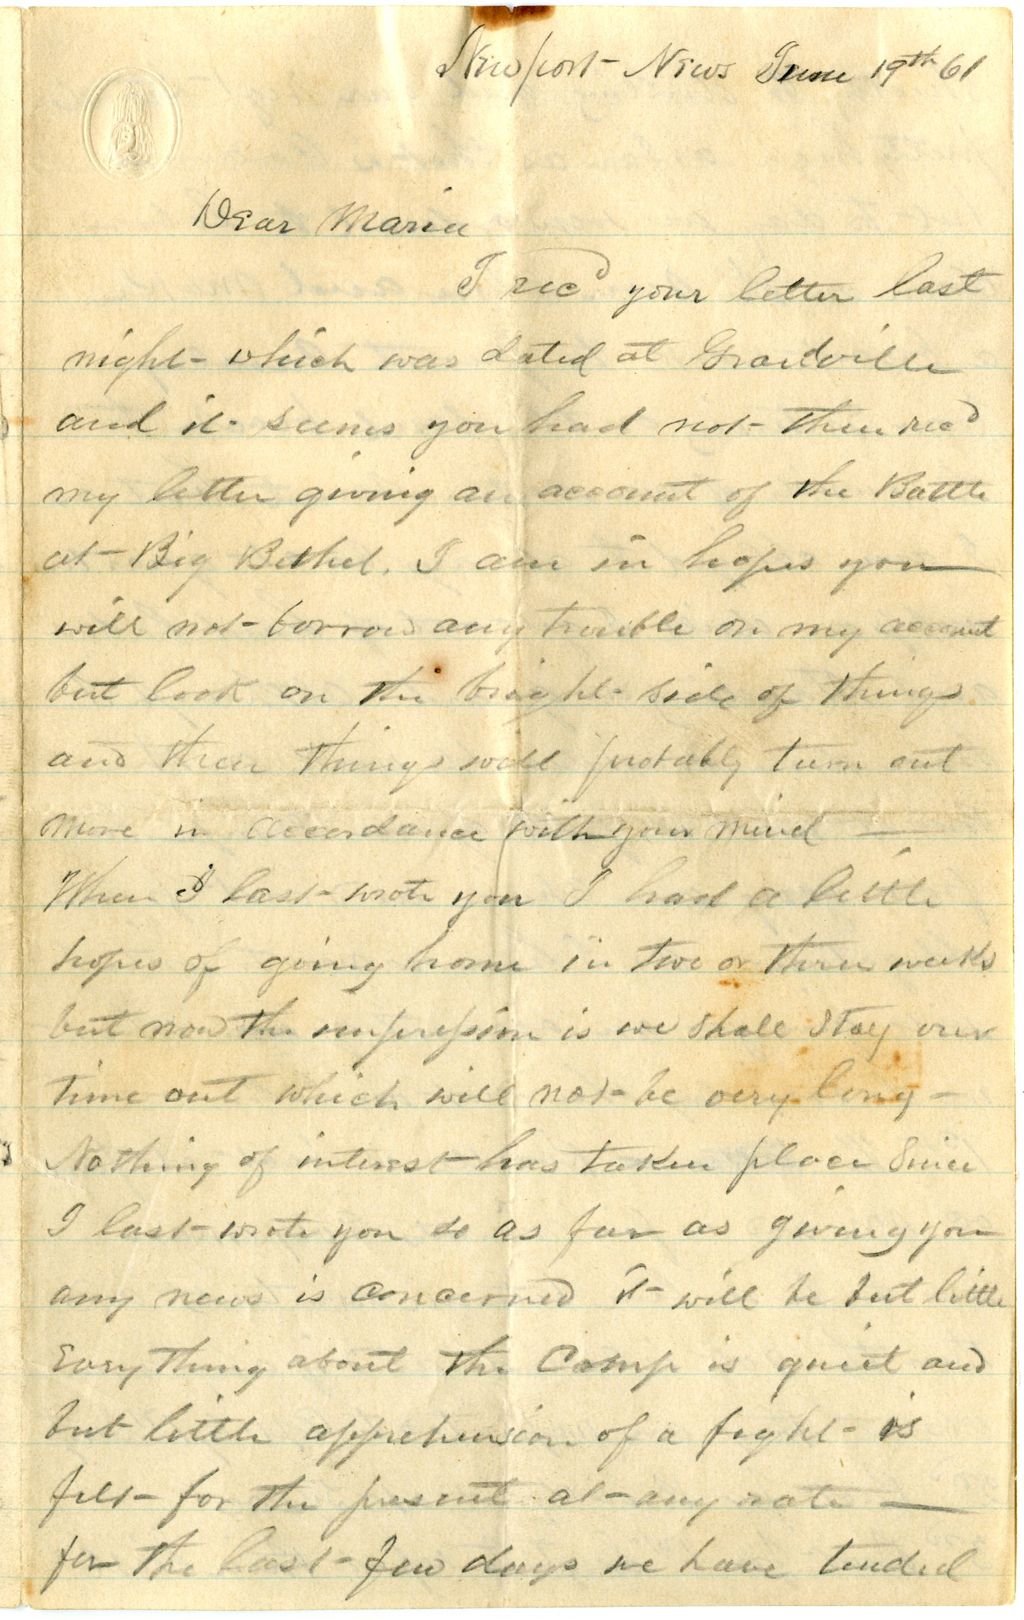 Newport- News June 19th 61
Dear Maria
I recd your letter last
night- which was dated at
and it- seems you had not- then recd
my letter giving an account of the Battle
at- Big Bethel. I am in hopes you
will not- borrow any trouble on my account
but look on the bright- side of things
and then things will probably turn out
more in accordance with your mind —
When I last- wrote you I had a little
hopes of going home in two or three weeks
but now the impression is we shall stay our
time out which will not- be very long -
Nothing of interest has taken place since
I last- wrote you so as far as giving you
any news is concerned it- will be but little
Everything about the Camp is quiet and
but little apprehension of a fight- is
felt- for the present at- any rate —
for the last- few days we have tended